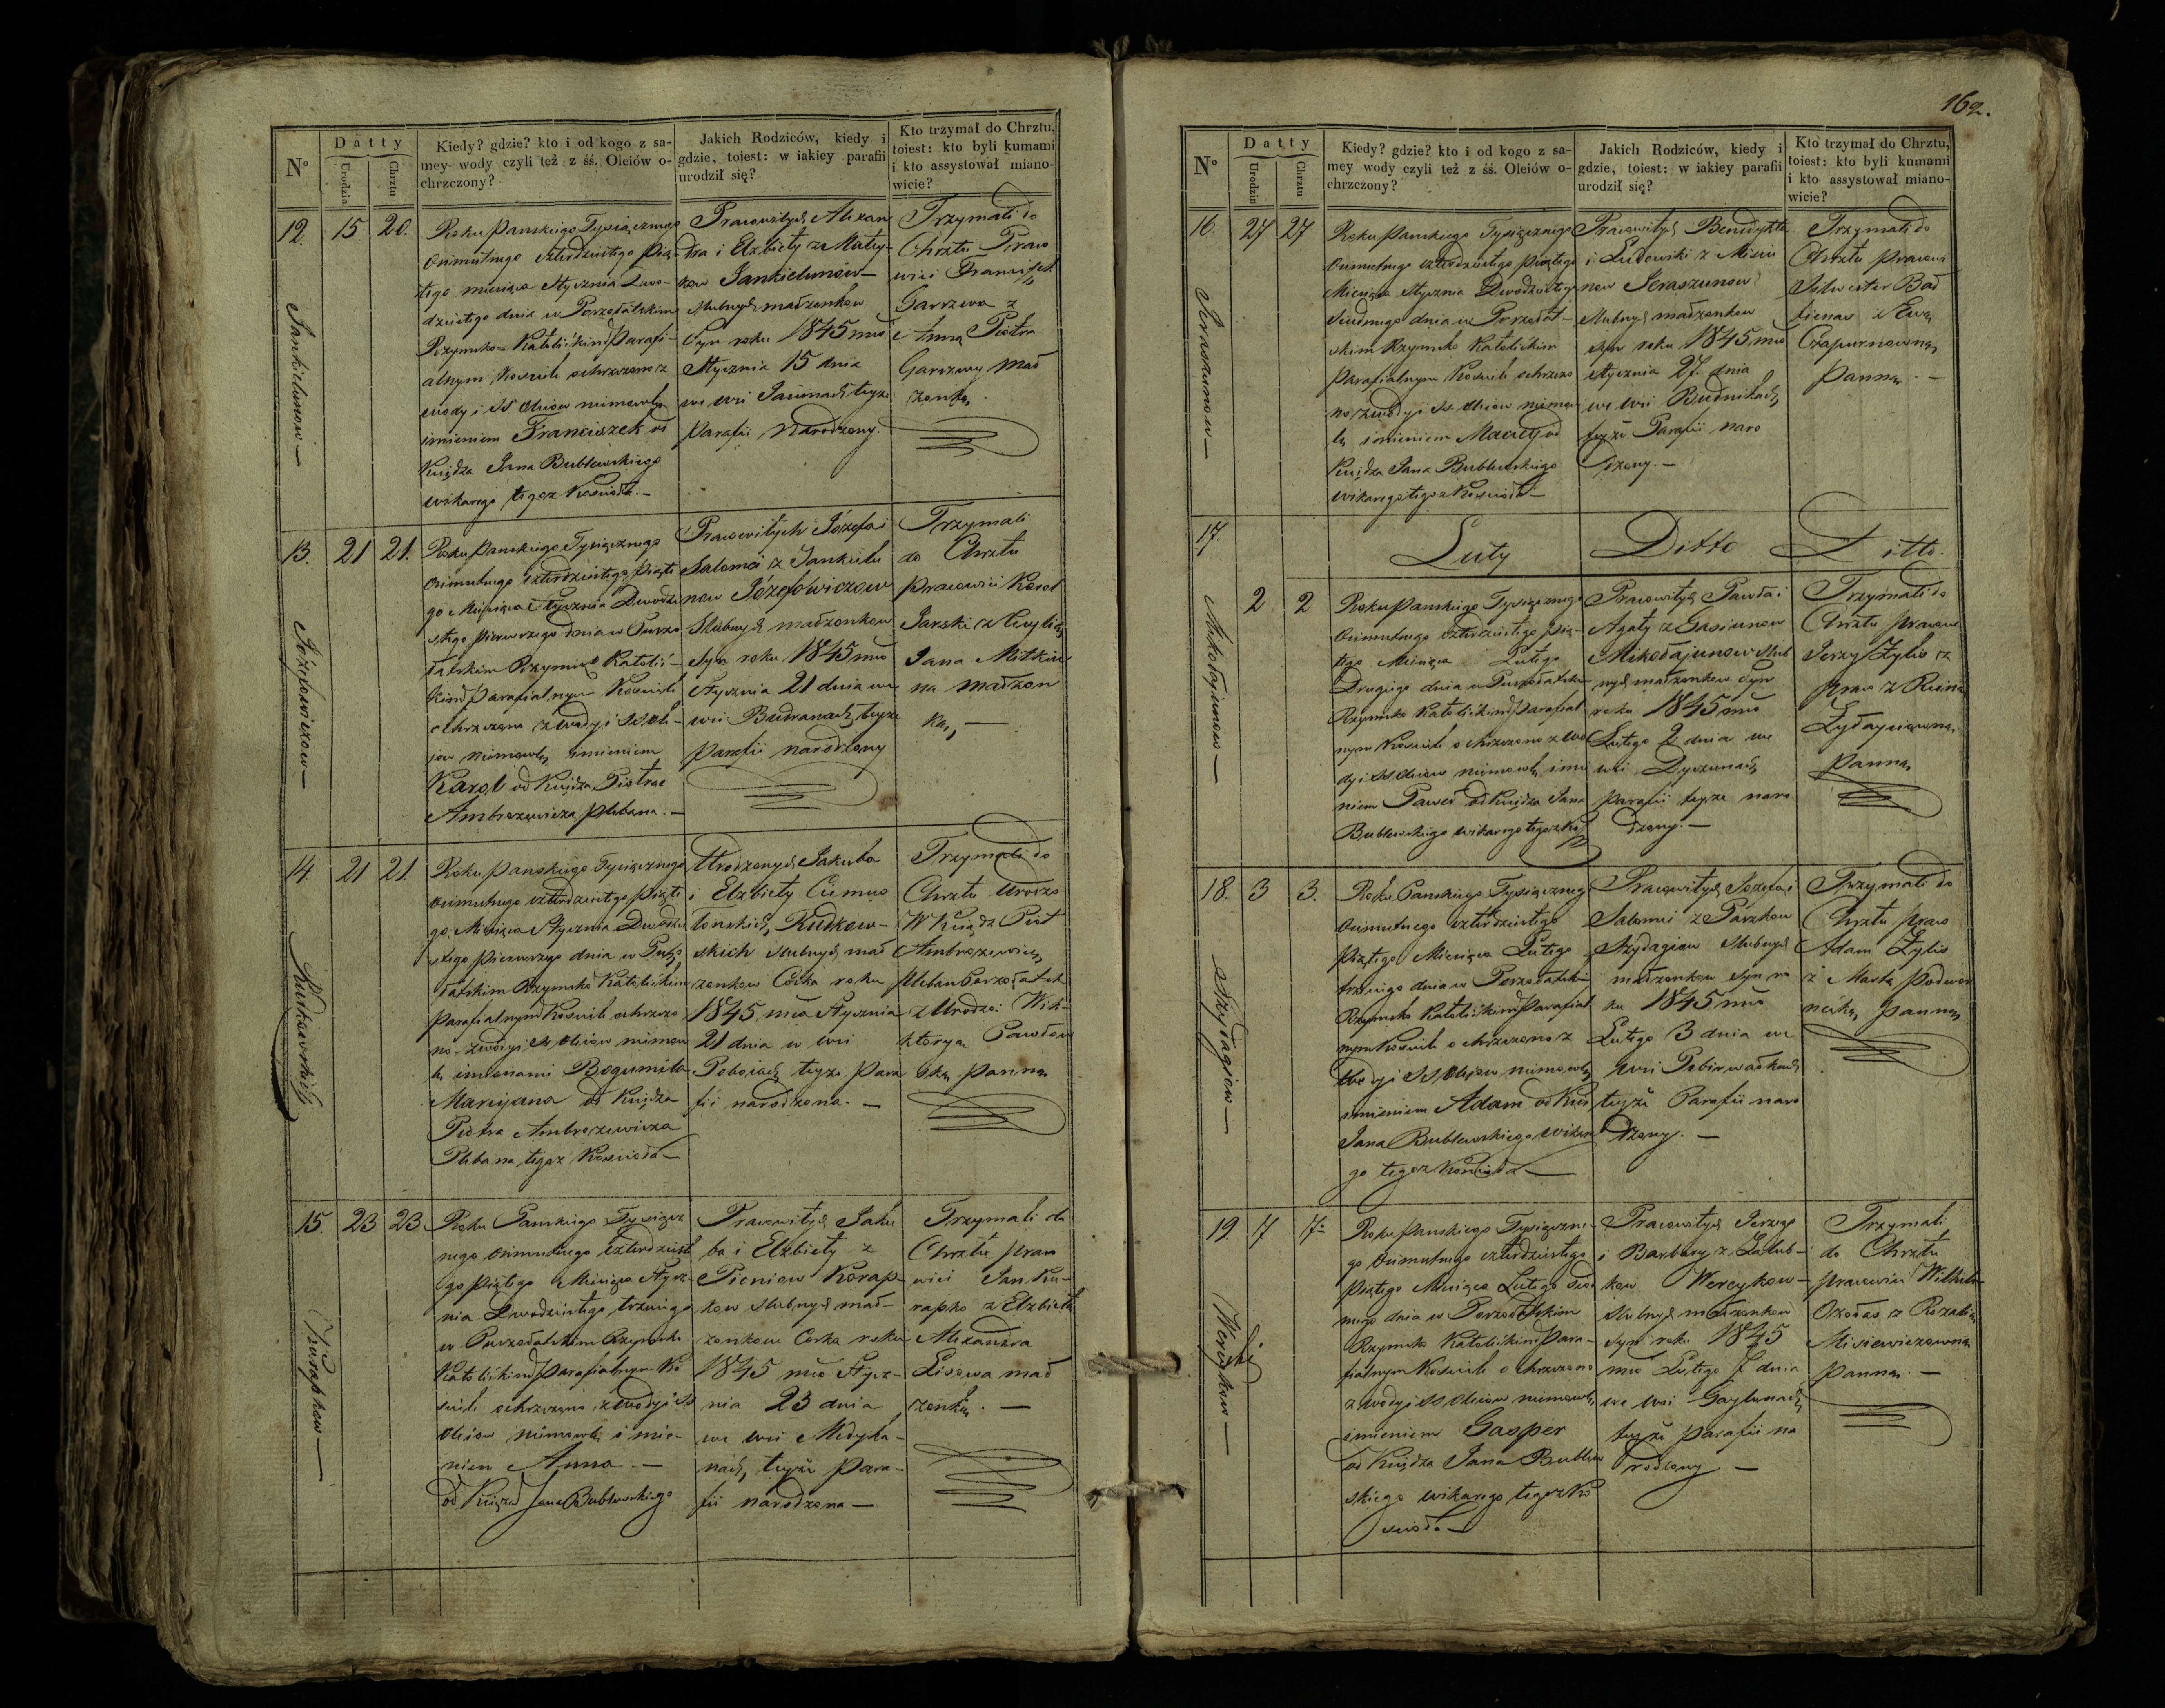 162.
Nº
Datty
Urodzin
Chrztu
Kiedy? gdzie? kto i od kogo z sa-
mey wody czyli też z śś. Oleiów o-
chrzczony?
Jakich Rodziców, kiedy i
gdzie, toiest: w iakiey parafii
urodził się?
Kto trzymał do Chrztu,
toiest: kto byli kumami
i kto assystował miano-
wicie?
12.
15
20.
Jankielunow —
Roku Panskiego Tysiącznego
Osimsetnego czterdziestego Pią-
tego miesiąca Stycznia Dwo-
dziestego dnia w Porzołatskim
Rzymsko Katolickim Parafi-
alnym Kosciele ochrzczono z
wody i SS Oleiow niemowlę
imieniem Franciszek od
Księdza Jana Bublewskiego
wikarego tegoz Kosciola. —
Pracowitych Alexan
dra i Elzbiety z Matey-
kow Jankielunow —
Slubnych małzonkow
Syn roku 1845 mca
Stycznia 15 dnia
we wsi teyze
Parafii Narodzony.
Trzymali do
Chrztu Praco
wici Francisz
Garszwa z
Anną Piotra
Garszwy mał
zonką.
13.
21
21.
Józefowiczow —
Roku Panskiego Tysiącznego
Osimsetnego czterdziestego Piąte
go Miesiąca Stycznia Dwodzie
stego pierwszego dnia w Porzo
łatskim Rzymsko Katolic-
kim Parafialnym Kosciele
ochrzczono z wody i SS Ole-
jow niemowlę imieniem
Karol od Księdza Piotra
Ambrozewicza Plebana. —
Pracowitych Józefa i
Salomei z Jankielu
now Józefowiczow
Slubnych małzonkow
Syn roku 1845 mca
Stycznia 21 dnia we
wsi Budranach teyze
Parafii narodzony
Trzymali
do Chrztu
Pracowici Karol
Jarski z
Jana
na małzon
ką, —
14.
21
21.
Rudkowskich
Roku Panskiego Tysiącznego
Osimsetnego czterdziestego Piąte
go Miesiąca Stycznia Dwodzie
stego Pierwszego dnia w Porzo
łatskim Rzymsko Katolickim
Parafialnym Kosciele ochrzczo
no z wody i SS Oleiow niemow
lę imionami Bogumiła
Maryjana od Księdza
Piotra Ambrozewicza
Plebana tegoz Kosciola —
Urodzonych Jakuba
i Elzbiety
Rudkow-
skich slubnych mał
zonkow Corka roku
1845 mca Stycznia
21 dnia w wsi
Poboiach teyze Para
fii narodzona. —
Trzymali do
Chrztu Urodzo
W Xiądz Piot
Ambrozewicz
Pleban Porzołatsk
z Urodzo: Wik-
toryą Pawłow
ską panną
15.
23
23.
Korapkow —
Roku Panskiego Tysiącz
nego Osimsetnego Czterdziest
ego Piątego Miesiąca Stycz-
nia Dwodziestego trzeciego
w Porzołatskim Rzymsko
Katolickim Parafialnym Ko
sciele ochrzczono z wody i SS
Oleiow niemowlę imie-
niem Anna. —
od Księdza Jana Bublewskiego
Pracowitych Jaku
ba i Elzbiety z
Pieniow Korap-
kow slubnych mał-
zonkow Corka roku
1845 mca Stycz-
nia 23 dnia
we wsi Medyka-
nach, teyze Para-
fii narodzona —
Trzymali do
Chrztu praco
wici Jan Ko-
rapko z Elzbietą
Alexandra
Lisowa mał
zonką. —
Nº
Datty
Urodzin
Chrztu
Kiedy? gdzie? kto i od kogo z sa-
mey wody czyli też z śś. Oleiów o-
chrzczony?
Jakich Rodziców, kiedy i
gdzie, toiest: w iakiey parafii
urodził się?
Kto trzymał do Chrztu,
toiest: kto byli kumami
i kto assystował miano-
wicie?
16.
27
27
Seraszunow —
Roku Panskiego Tysiącznego
Osimsetnego czterdziestego Piątego
Miesiąca Stycznia Dwodziestego
Siodmego dnia w Porzołat-
skim Rzymsko Katolickim
Parafialnym Kosciele ochrzczo
no z wody i SS Oleiow niemow
lę imieniem Maciey od
Księdza Jana Bublewskiego
wikarego tegoz Kosciola —
Pracowitych Benedykta
i Ludowiki z Misiu
now Seraszunow
Slubnych małzonkow
syn roku 1845 mca
Stycznia 27 dnia
we wsi Budnikach,
teyze Parafii naro
dzony. —
Trzymali do
Chrztu Pracowi
Silwester Bał
z Ewą
Czapurnowną
Panną. —
17.
Luty
Ditto
Ditto.
2
2
Mikołajunow —
Roku Panskiego Tysiącznego
Osimsetnego czterdziestego Pią-
tego Miesiąca Lutego
Drugiego dnia w Porzołatskim
Rzymsko Katolickim Parafial
nym Kosciele ochrzczono z wo
dy i SS Oleiow niemowlę imie
niem Paweł od Księdza Jana
Bublewskiego wikarego tegoz Koś
Pracowitych Pawła i
Agaty z Gasiunow
Mikołajunow Slub
nych małzonkow Syn
roku 1845 mca
Lutego 2 dnia we
wsi Dyrzunach
Parafii teyze naro
dzony. —
Trzymali do
Chrztu Pracow
Jerzy Żylis z
Praco z
Panną
18.
3
3.
Szydagiow —
Roku Panskiego Tysiącznego
Osimsetnego czterdziestego
Piątego Miesiąca Lutego
trzeciego dnia w Porzołatskim
Rzymsko Katolickim Parafial
nym Kosciele ochrzczono z
Wody i SS Oleiow niemowlę
imieniem Adam od Księ
Jana Bublewskiego Wikare
go tegoz Kosciola —
Pracowitych Józefa i
Salomei z Parzkow
Szydagiow slubnych
małzonkow syn ro
ku 1845 mca
Lutego 3 dnia we
wsi
teyze Parafii naro
dzony. —
Trzymali do
Chrztu praco
Adam Żylis
z Martą Podwor
necką Panną
19.
7
7.
Wereykow —
Roku Panskiego Tysiączne-
go Osimsetnego czterdziestego
Piątego Miesiąca Lutego siod
mego dnia w Porzołatskim
Rzymsko Katolickim Para-
fialnym Kosciele ochrzczono
z wody i SS Oleiow niemowlę
imieniem Gasper
od Księdza Jana Bublew
skiego wikarego tegoz Ko
sciola —
Pracowitych Jerzego
i Barbary z Hołub-
kow Wereykow —
Slubnych małzonkow
Syn roku 1845
mca Lutego 7 dnia
we wsi Gaylunach,
teyze Parafii na
rodzony —
Trzymali
do Chrztu
Pracowici Wilhelm
Ozołas z Rozalią
Misiewiczowną
Panną. —